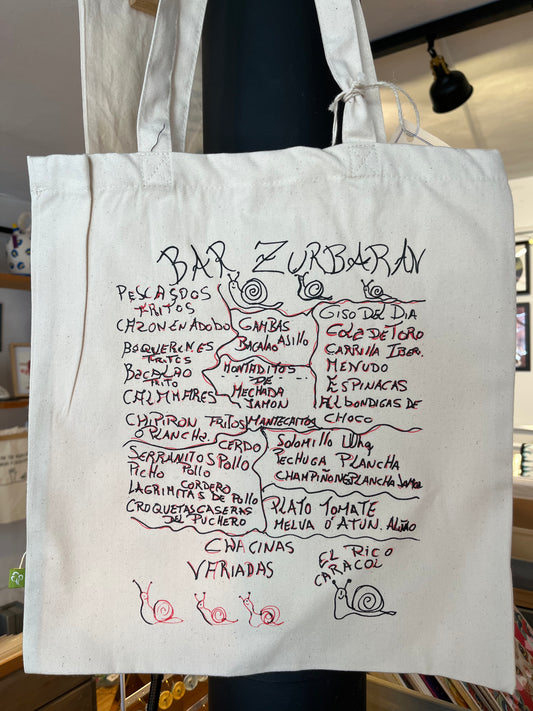 BAR ZURBARAN
PESCASDOS
FRITOS
CAZON EN ADOBO
BOQUERENES
FRITES
BACALAO
FRITO
CALMHARES
CHIPIRON FRITOS
O PLANCHA.
GAMBAS
BACALAO ASILLO
MONTADITOS
DE
MECHADA
JAMON
MANTECAITOS
GISO DEL DIA
COLA DE TORO
CARRILLA IBER.
MENUDO
ESPINACAS
ALBONDIGAS DE
CHOCO
CERDO
SERRANITOS POLLO
PICHO POLLO
CORDERO
LAGRIMITAS DE POLLO
CROQUETAS CASERAS
DEL PUCHERO
SOLOMILLO
PECHUGA PLANCHA
CHAMPIÑONES PLANCHA JAMON
PLATO TOMATE
MELVA O ATUN. ALIÑO
CHACINAS
VARIADAS
EL RICO
CARACOL